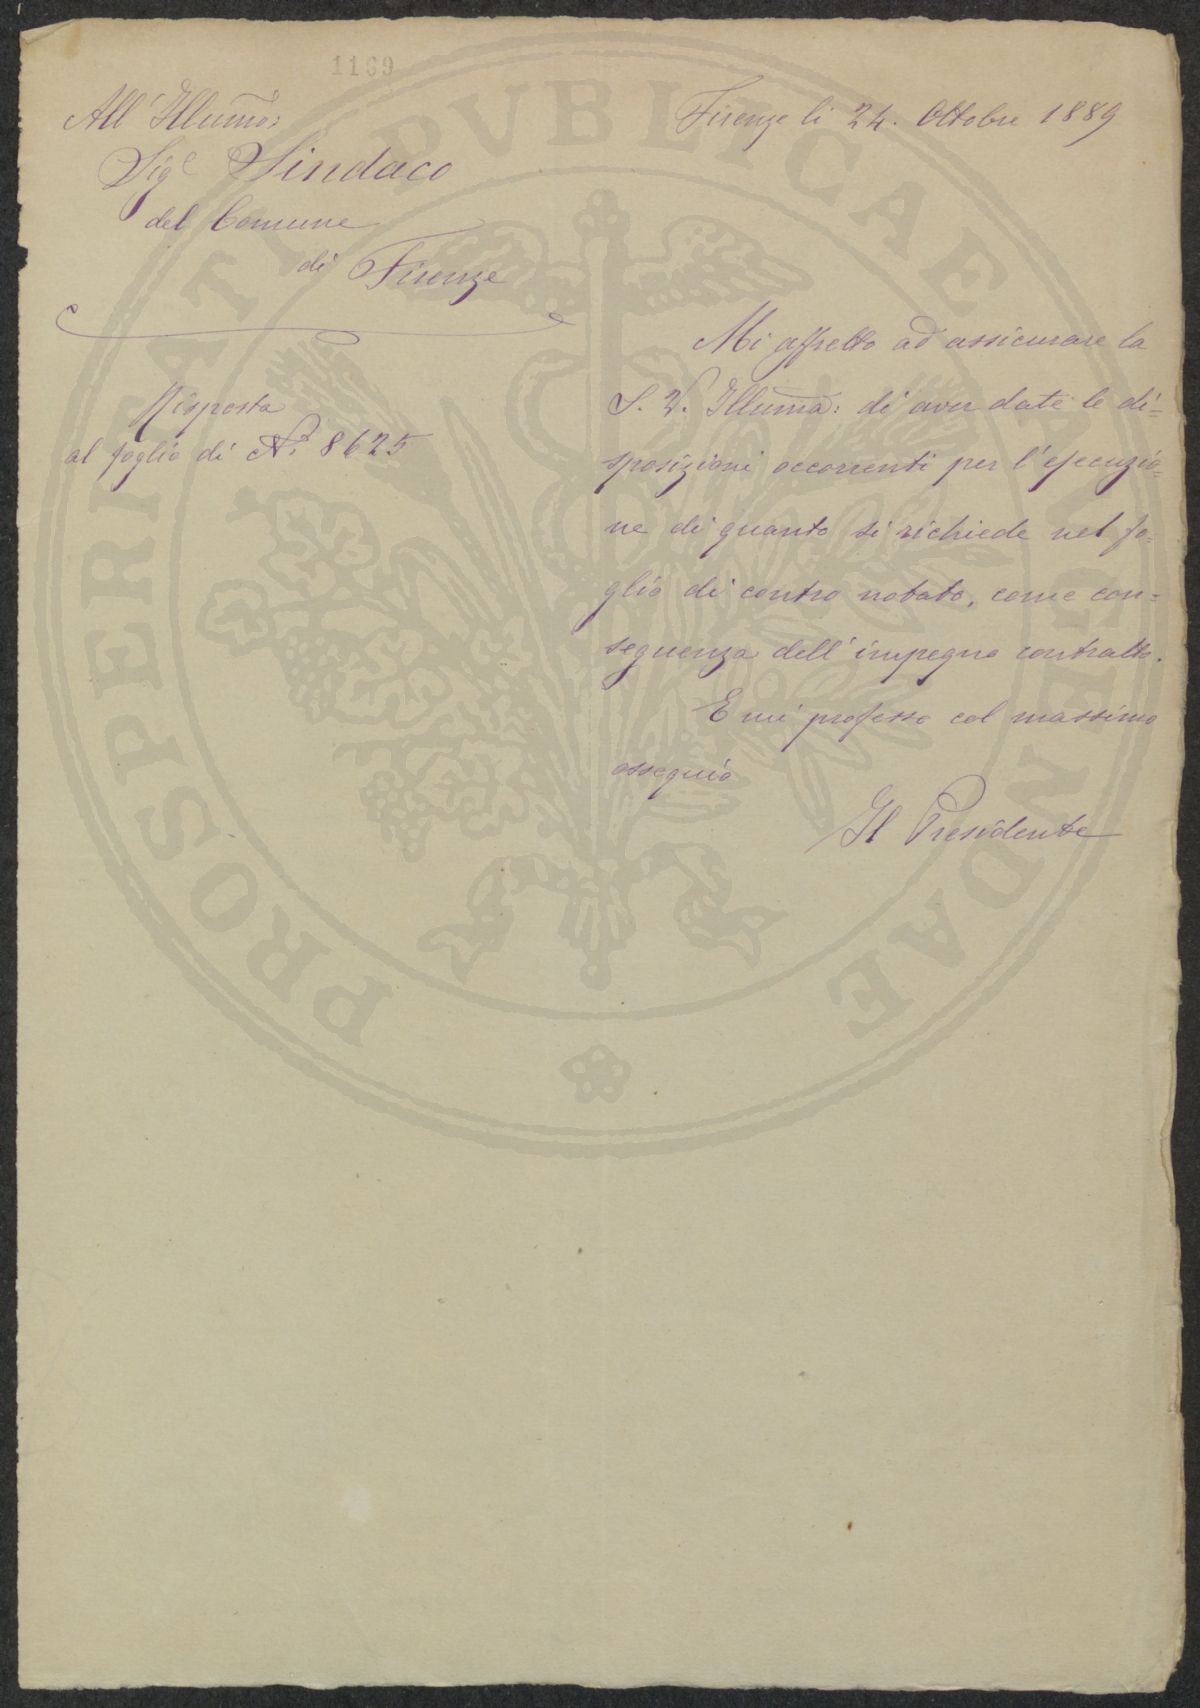 1169
All' Illumo:
Sigr Sindaco
del Comune
di Firenze
Firenze li 24. Ottobre 1889
Risposta
al foglio di No. 8625
Mi affretto ad assicurare la
S. V. Illuma: di aver date le di=
sposizioni occorrenti per l'esecuzio=
ne di quanto si richiede nel fo=
glio di contro notato, come con=
seguenza dell'impegno contratto.
E mi professo col massimo
ossequio
Il Presidente
PROSPERITATI PVBLICAE AVGENDAE